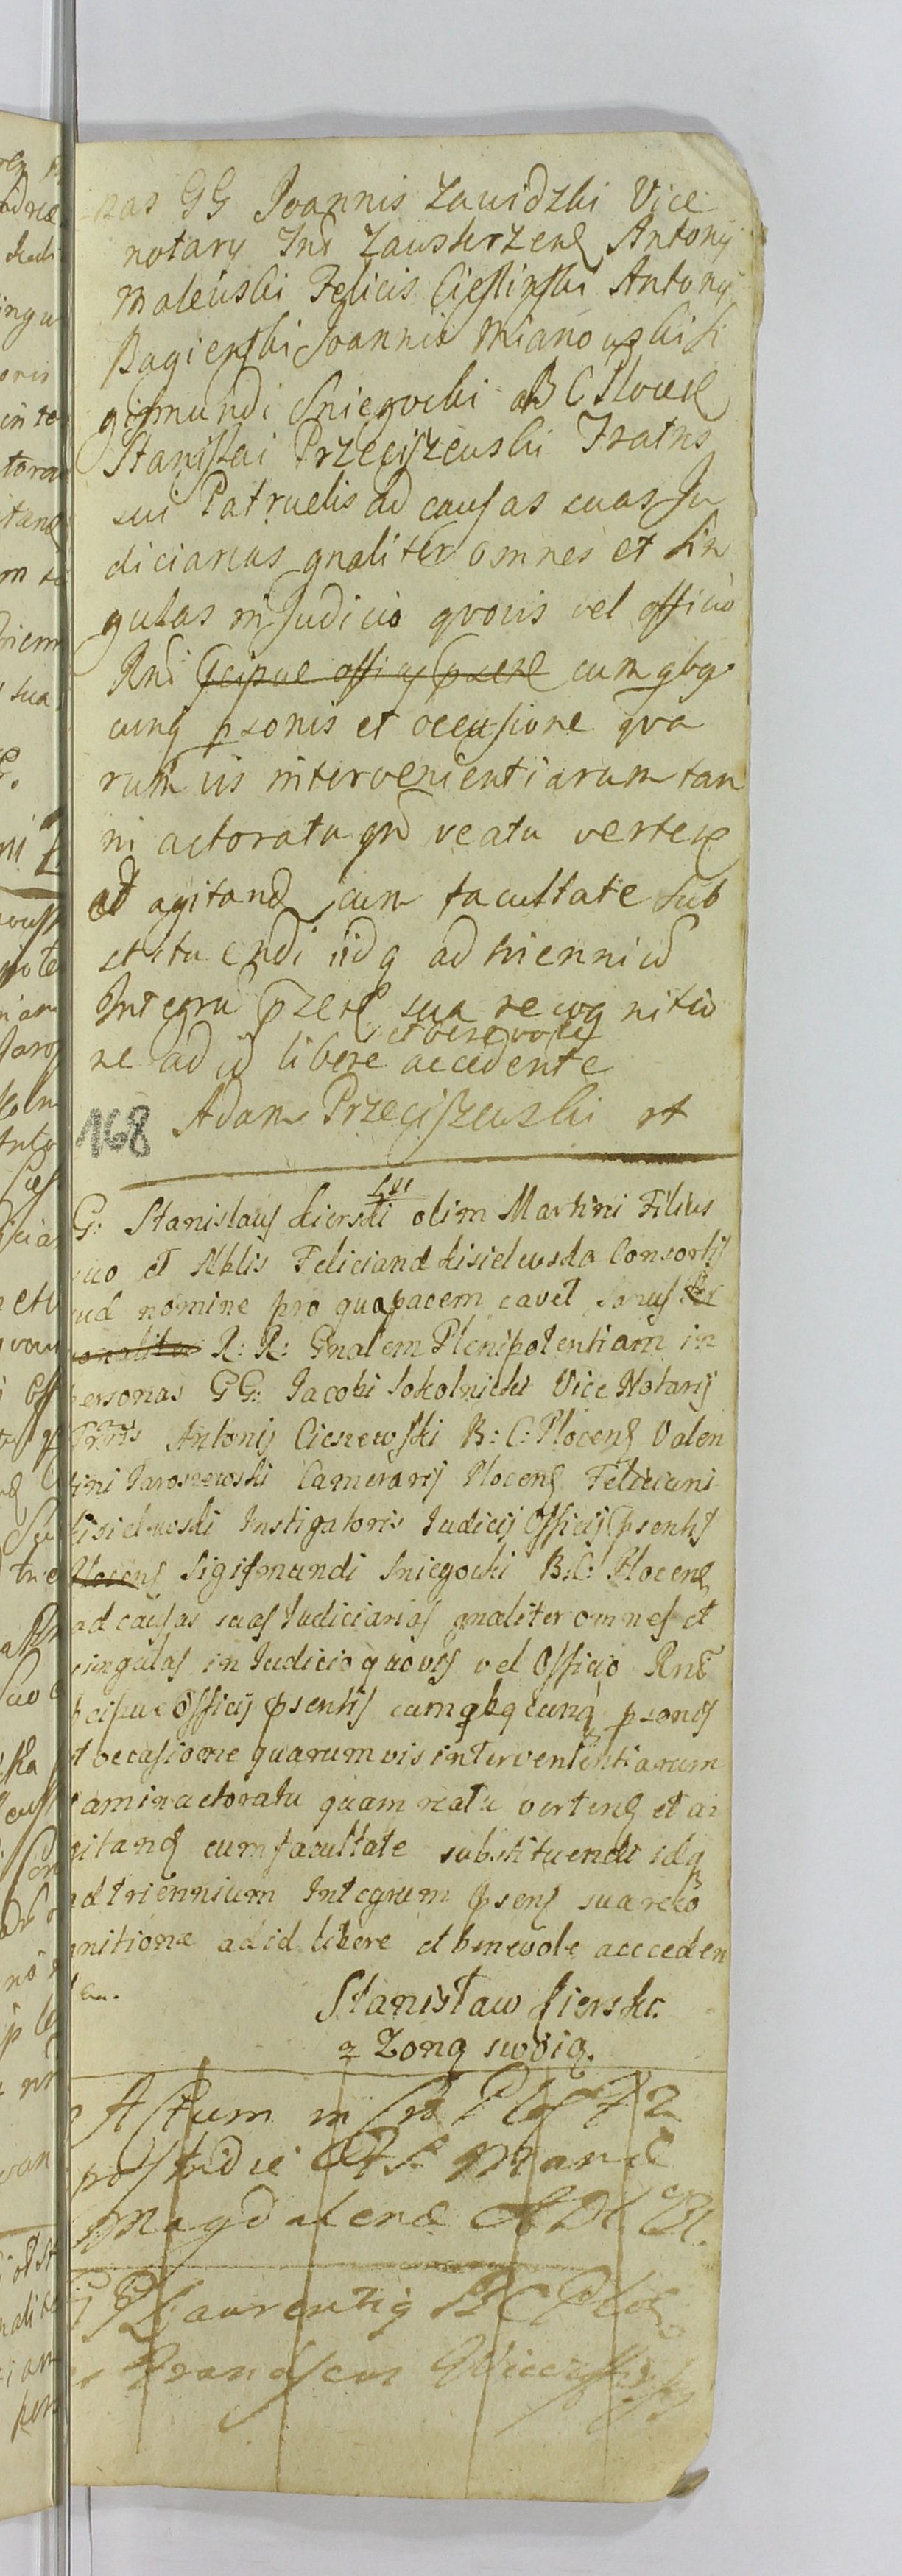 nas GG Joannis Zawidzki Vice
notary Ind Zawskrzeng Antony
Maleuski Felicis Ciesłinski Antony
Bagienski Joannis Mianowski Si
gismundi Sniegocki B C Ploceng
Stanislai Przeciszewski Fratris
sui Patruelis ad causas suas Ju
diciarias gnaliter omnes et sin
gulas in Judicio quovis vel officio
Rnd pcipue officy psene cum qbq
cunq psonis et occasione qua
rum vis intervenientiarum tan
in actoratu qm reatu verteng
et agitand cum facultate sub
stituendi idq ad trienniu
Integru psens sua recogniti
et benevole
ne ad id libere accedente
168 Adam Przeciszewski
G: Stanislaus Kierski olim Martini Filius
suo et Nblis Feliciana Kisielewska Consortis
sua nomine pro qua pacem cavet sanus per
sonaliter R: R: Gnalem Plenipotentiam in
personas GG: Jacobi Sokolnicki Vice Notarij
Antonij Cieszewski B: C: Ploceng Valen
tini Jaroszewski Camerarij Ploceng Feliciani
Kisielewski Instigatoris Judicij Officij psentis
Ploceng Sigismundi Sniegocki B: C: Ploceng
ad causas suas Judiciarias gnaliter omnes et
singulas in Judicio quovis vel Officio Rnd
pcipue Officij psentis cum qbqcunq psonis
et occasione quarumvis interventientiarum
tam in actoratu quam reatu verteng et a
gitand cum facultate substituendi idq
ad triennium Integrum psens sua reco
gnitione ad id libere et benevole acceden
te.
Stanisław Kierski
z Zoną swoią.
Actum in Plo Fr 2
postridie Mariae
Magdalenae A D
Laurenty B C Ploc